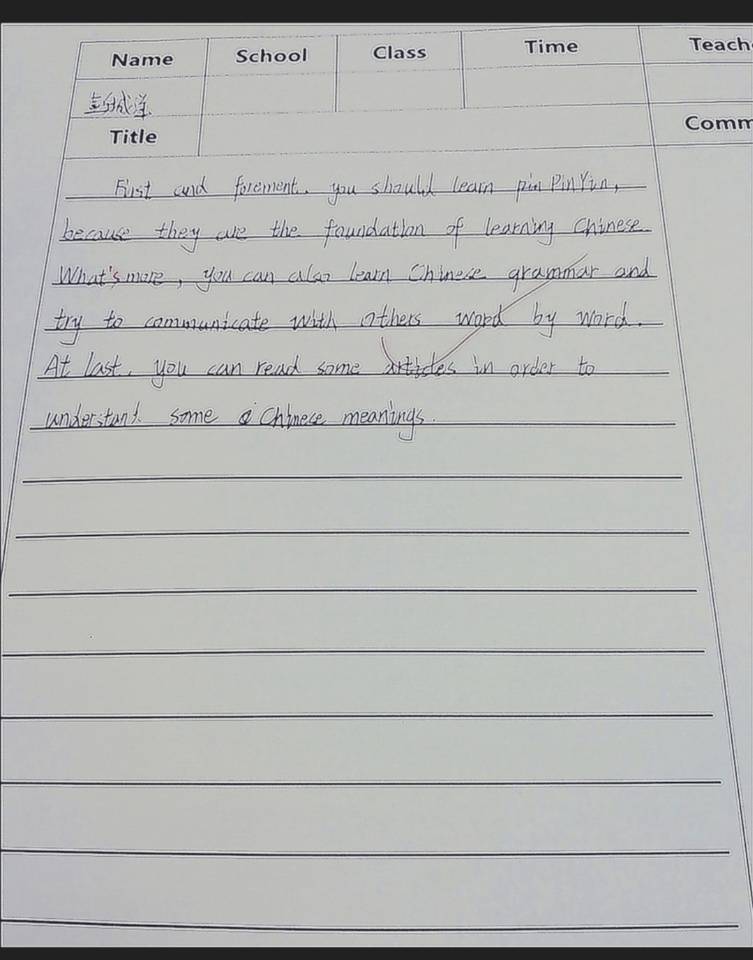 Name School Class Time Teach
彭成洋
Title Comm
First and forement. you should learn pin PinYin,
because they are the foundation of learning Chinese.
What's more, you can also learn Chinese grammar and
try to communicate with others word by word.
At last. you can read some articles in order to
understant some Chinece meanings.